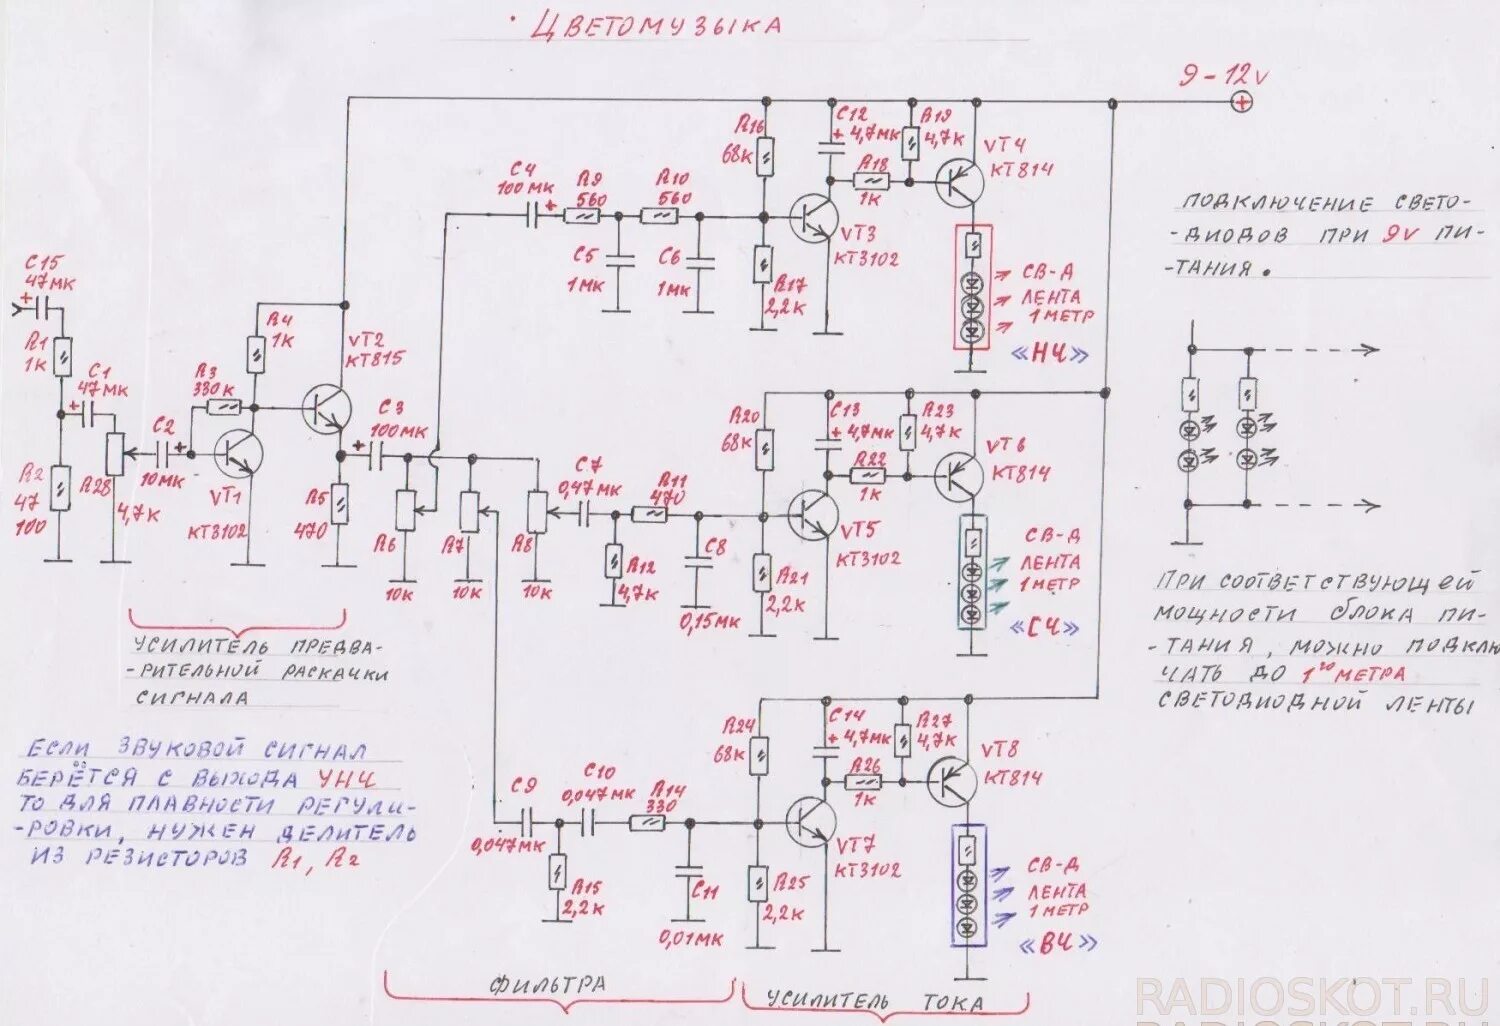 Цветомузыка
9-12v
C15
47мк
R1
1к
C1
47мк
R2
47
100
R28
4,7к
C2
10мк
R3
330к
R4
1к
VT1
КТ3102
VT2
КТ815
R5
470
C3
100мк
R6
10к
R7
10к
R8
10к
C4
100мк
R9
560
R10
560
C5
1мк
C6
1мк
R16
68к
R17
2,2к
C12
4,7мк
R18
1к
R19
4,7к
VT3
КТ3102
VT4
КТ814
СВ-Д
ЛЕНТА
1 МЕТР
«НЧ»
C7
0,47мк
R11
470
R12
4,7к
C8
0,15мк
R20
68к
R21
2,2к
C13
4,7мк
R22
1к
R23
4,7к
VT5
КТ3102
VT6
КТ814
СВ-Д
ЛЕНТА
1 МЕТР
«СЧ»
C9
0,047мк
C10
0,047мк
R14
330
R15
2,2к
C11
0,01мк
R24
68к
R25
2,2к
C14
4,7мк
R26
1к
R27
4,7к
VT7
КТ3102
VT8
КТ814
СВ-Д
ЛЕНТА
1 МЕТР
«ВЧ»
УСИЛИТЕЛЬ ПРЕДВА-
-РИТЕЛЬНОЙ РАСКАЧКИ
СИГНАЛА
ЕСЛИ ЗВУКОВОЙ СИГНАЛ
БЕРЁТСЯ С ВЫХОДА УНЧ
ТО ДЛЯ ПЛАВНОСТИ РЕГУЛИ-
-РОВКИ, НУЖЕН ДЕЛИТЕЛЬ
ИЗ РЕЗИСТОРОВ R1, R2
ФИЛЬТРА
УСИЛИТЕЛЬ ТОКА
ПОДКЛЮЧЕНИЕ СВЕТО-
-ДИОДОВ ПРИ 9V ПИ-
-ТАНИЯ.
ПРИ СООТВЕТСТВУЮЩЕЙ
МОЩНОСТИ БЛОКА ПИ-
-ТАНИЯ, МОЖНО ПОДКЛЮ
ЧАТЬ ДО 1го МЕТРА
СВЕТОДИОДНОЙ ЛЕНТЫ
RADIOSKOT.RU
RADIOSKOT.RU